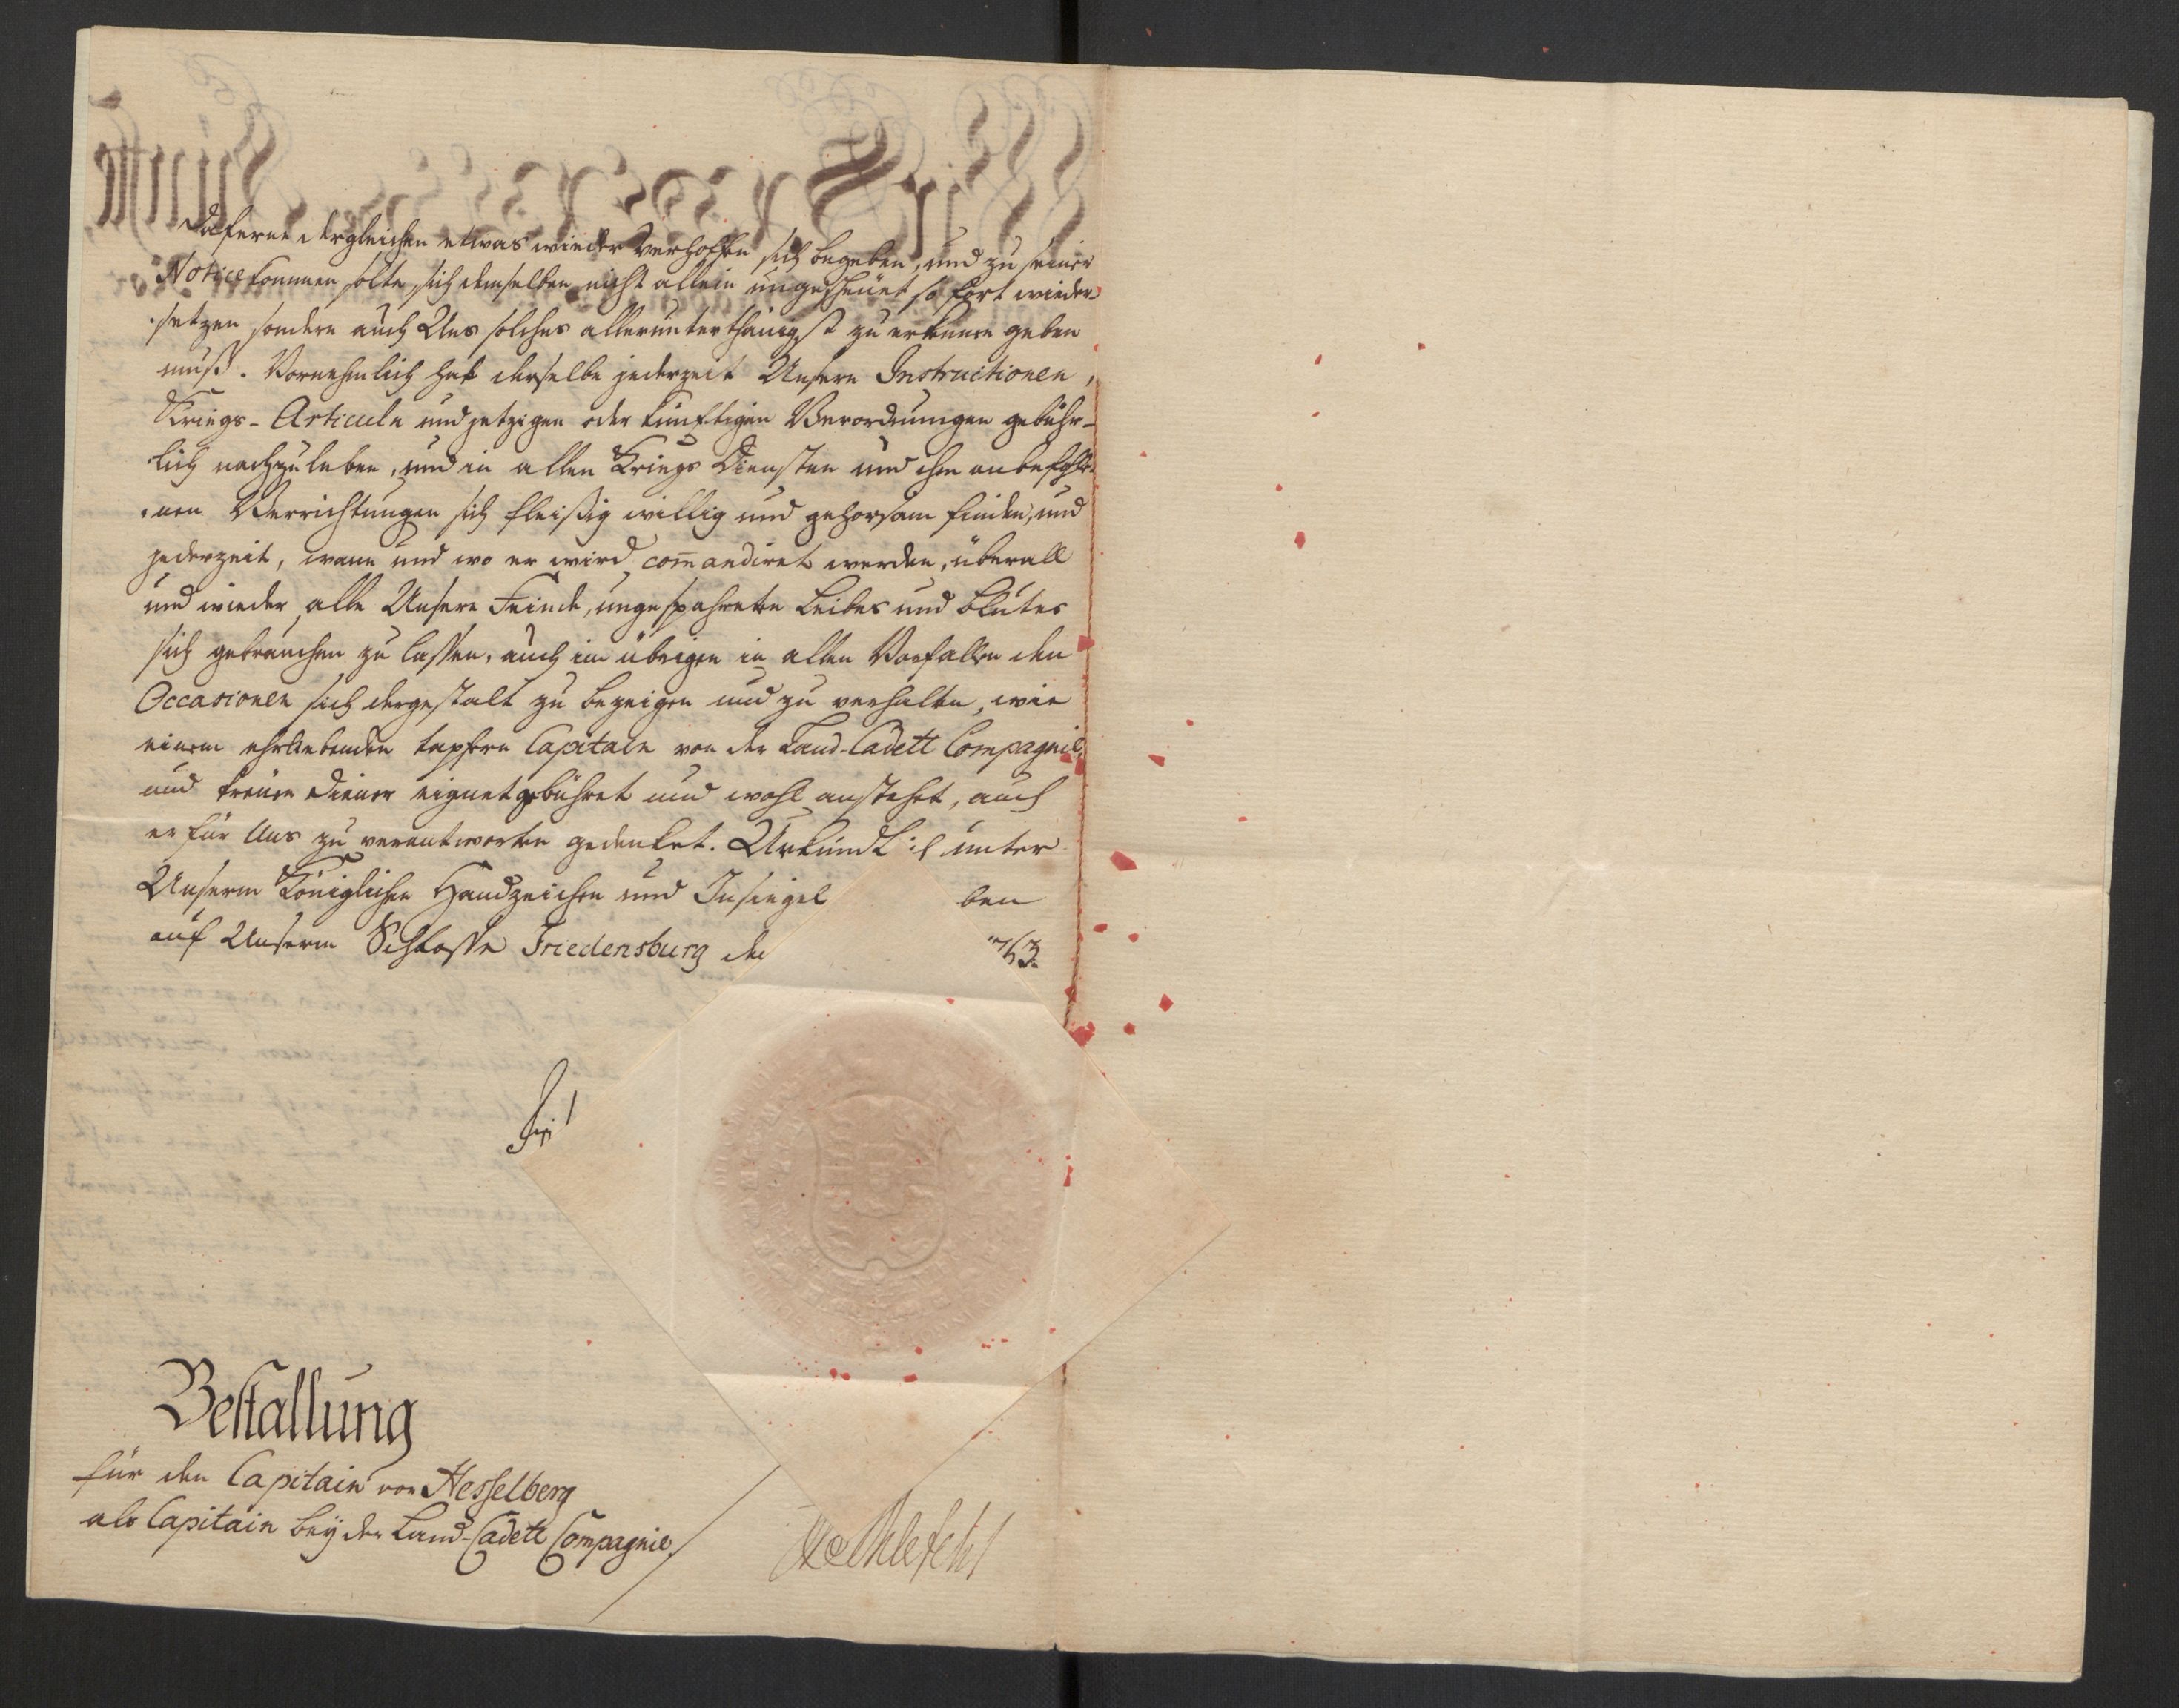 Daferne dergleichen etwas wieder Verhoffen sich begeben, und zu seiner
Notice kommen solte, sich demselben nicht allein ungescheuet so fort wieder-
setzen sondern auch Uns solches allerunterthänigst zu erkennen geben
muß. Vornehmlich hat derselbe jederzeit Unsern Instructionen,
Kriegs-Articuln und jetzigen oder künftigen Verordnungen gebühr-
lich nachzuleben, und in allen Kriegs Diensten und ihm anbefohle-
nen Verrichtungen sich fleißig willig und gehorsam finden, und
jederzeit, wann und wo er wird com̄andiret werden, überall
und wieder alle Unsere Feinde, ungespahreten Leibes und Blutes
sich gebrauchen zu lassen, auch im übrigen in allen Vorfallenden
Occasionen sich dergestalt zu bezeigen und zu verhalten, wie
einem ehrliebenden tapfern Capitain von der Land-Cadett Compagnie,
und treuen Diener eignet gebühret und wohl anstehet, auch
er für Uns zu verantworten gedenket. Urkundlich unter
Unserm Königlichen Handzeichen und Insiegel ben
auf Unserm Schlosse Friedensburg de 763.
Bestallung
für den Capitain von Hesselberg
als Capitain bey der Land-Cadett Compagnie.